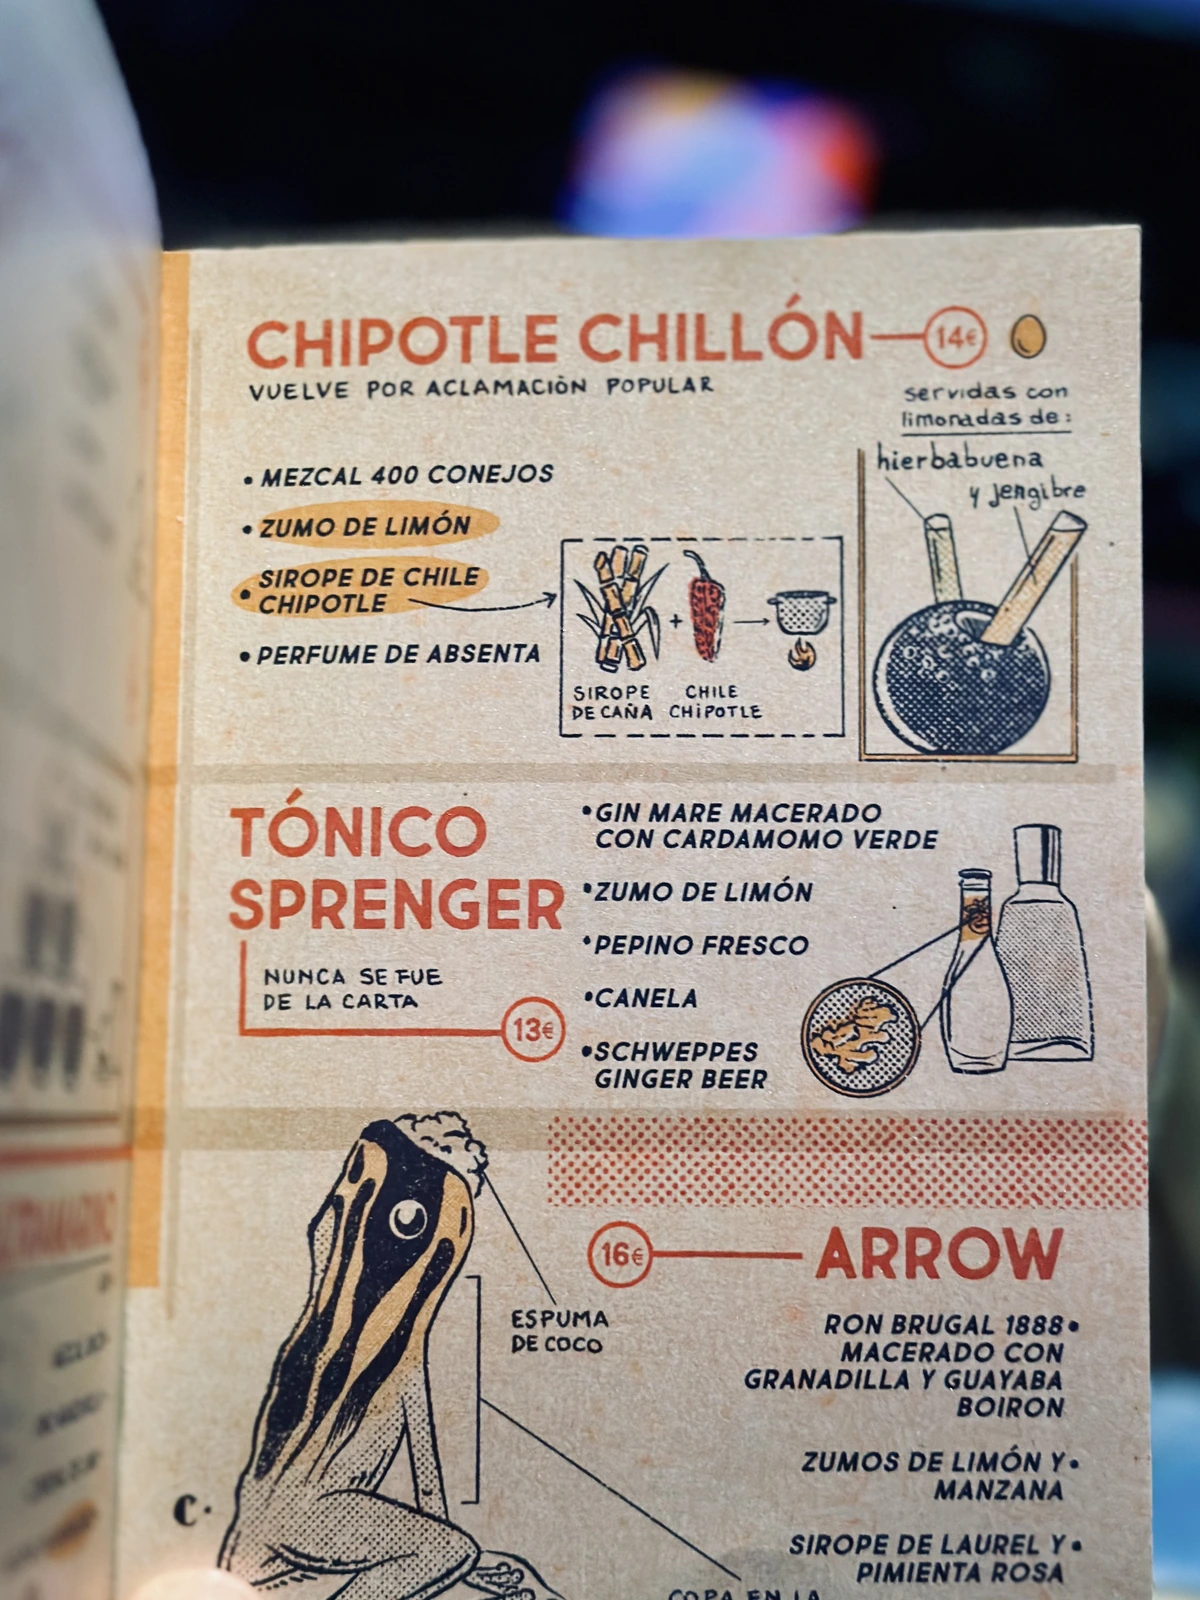 CHIPOTLE CHILLÓN
14€
VUELVE POR ACLAMACIÓN POPULAR
servidas con
limonadas de:
hierbabuena
y jengibre
• MEZCAL 400 CONEJOS
• ZUMO DE LIMÓN
• SIROPE DE CHILE
CHIPOTLE
• PERFUME DE ABSENTA
+
SIROPE
DE CAÑA
CHILE
CHIPOTLE
TÓNICO
SPRENGER
NUNCA SE FUE
DE LA CARTA
13€
• GIN MARE MACERADO
CON CARDAMOMO VERDE
• ZUMO DE LIMÓN
• PEPINO FRESCO
• CANELA
• SCHWEPPES
GINGER BEER
16€
ARROW
ESPUMA
DE COCO
RON BRUGAL 1888 •
MACERADO CON
GRANADILLA Y GUAYABA
BOIRON
ZUMOS DE LIMÓN Y •
MANZANA
SIROPE DE LAUREL Y •
PIMIENTA ROSA
C.
COPA EN LA